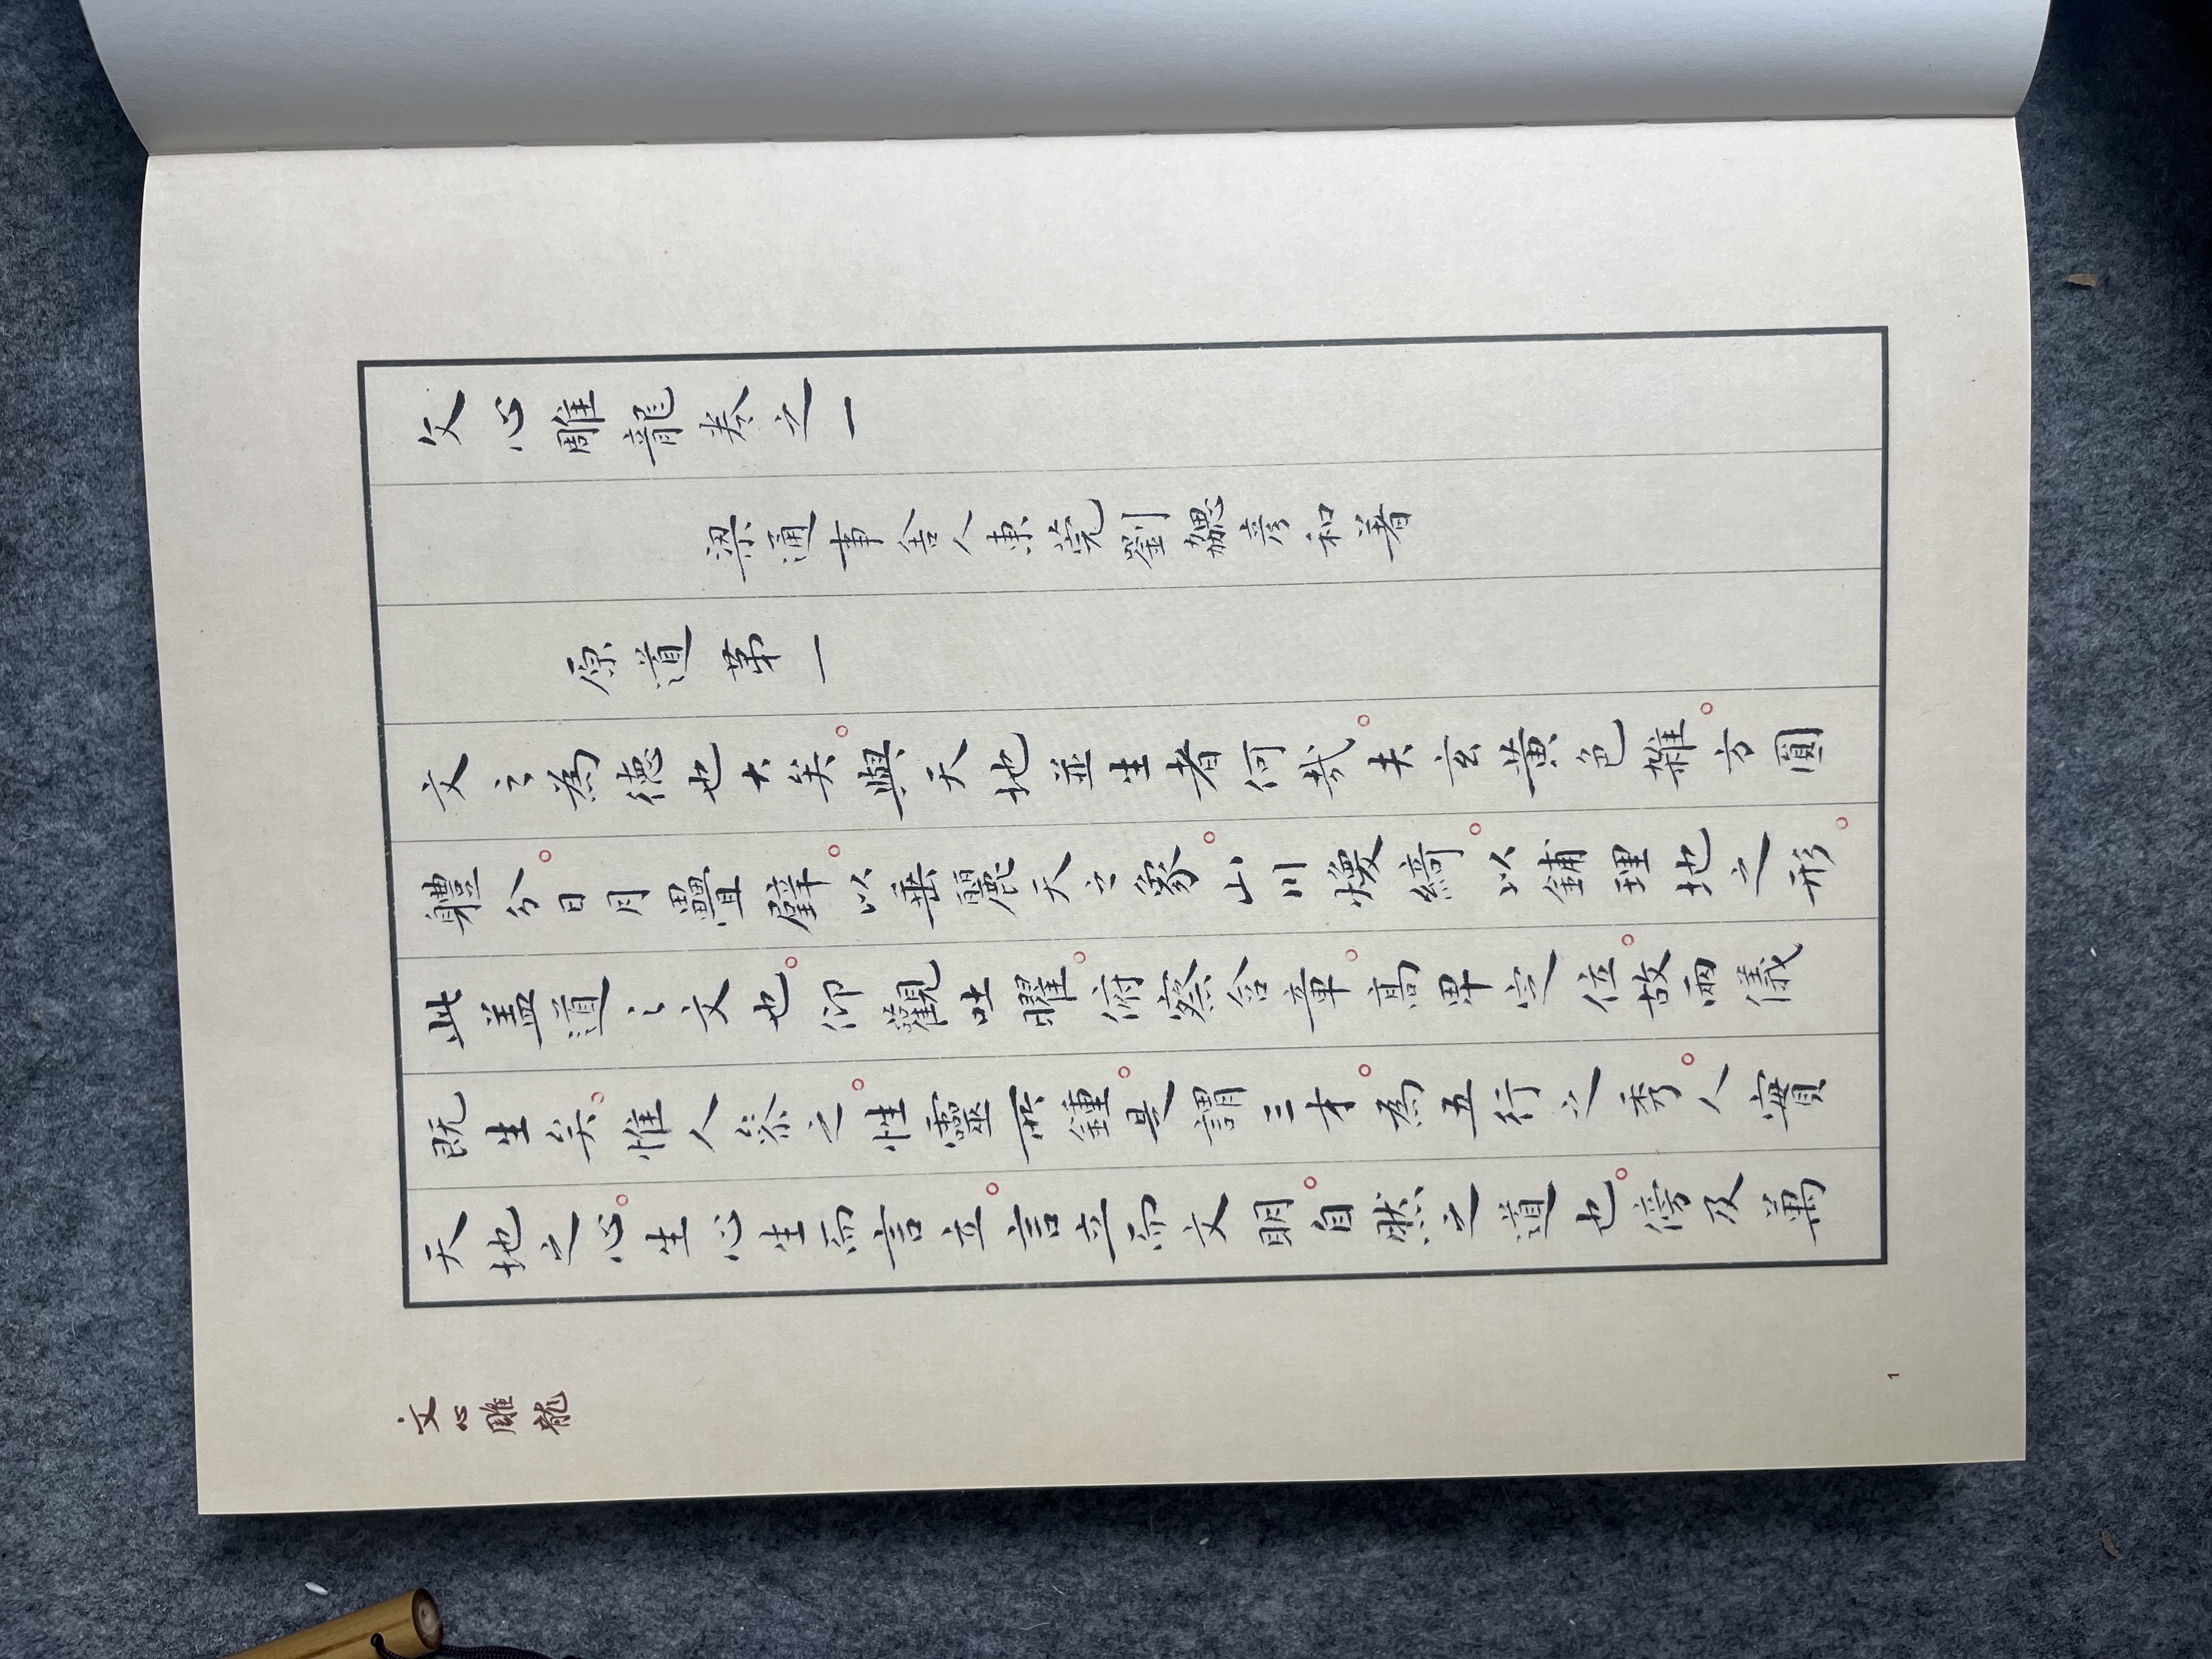 文心雕龍卷之一
梁通事舍人東莞劉勰彥和著
原道第一
文之為德也大矣。與天地並生者何哉。夫玄黃色雜。方圓
體分。日月疊璧。以垂麗天之象。山川煥綺。以鋪理地之形。
此蓋道之文也。仰觀吐曜。俯察含章。高卑定位。故兩儀
既生矣。惟人參之。性靈所鍾。是謂三才。為五行之秀。人實
天地之心。生心生而言立。言立而文明。自然之道也。傍及萬
文心雕龍
1